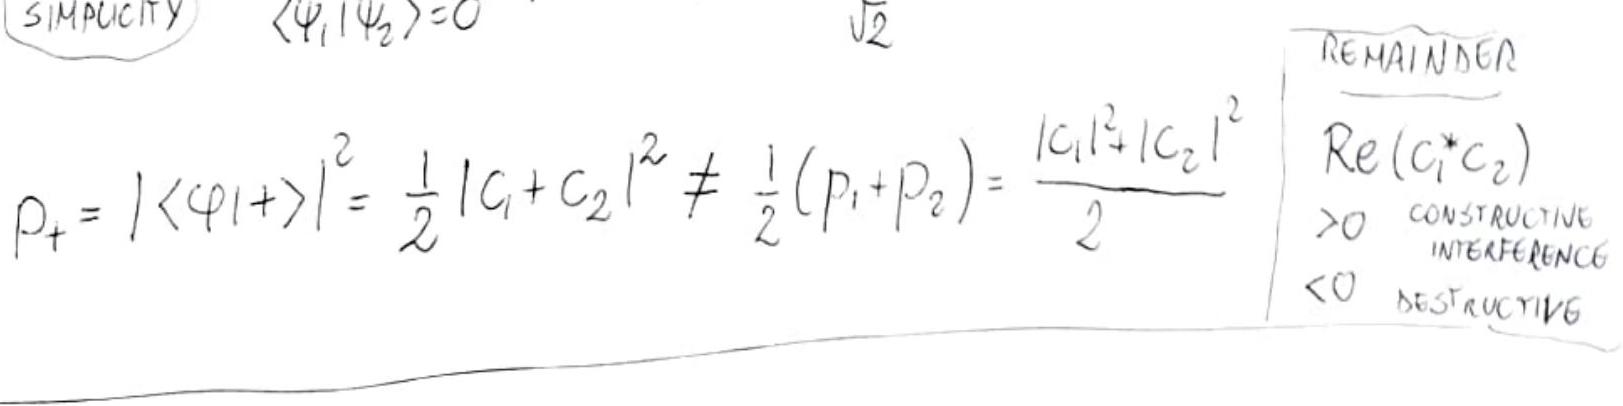 SIMPLICITY ⟨ψ₁|ψ₂⟩=0 √2
p₊ = |⟨φ|+⟩|² = 1/2 |c₁+c₂|² ≠ 1/2 (p₁+p₂) = |c₁|²+|c₂|² / 2
REMAINDER
Re(c₁*c₂)
>0 CONSTRUCTIVE
INTERFERENCE
<0 DESTRUCTIVE